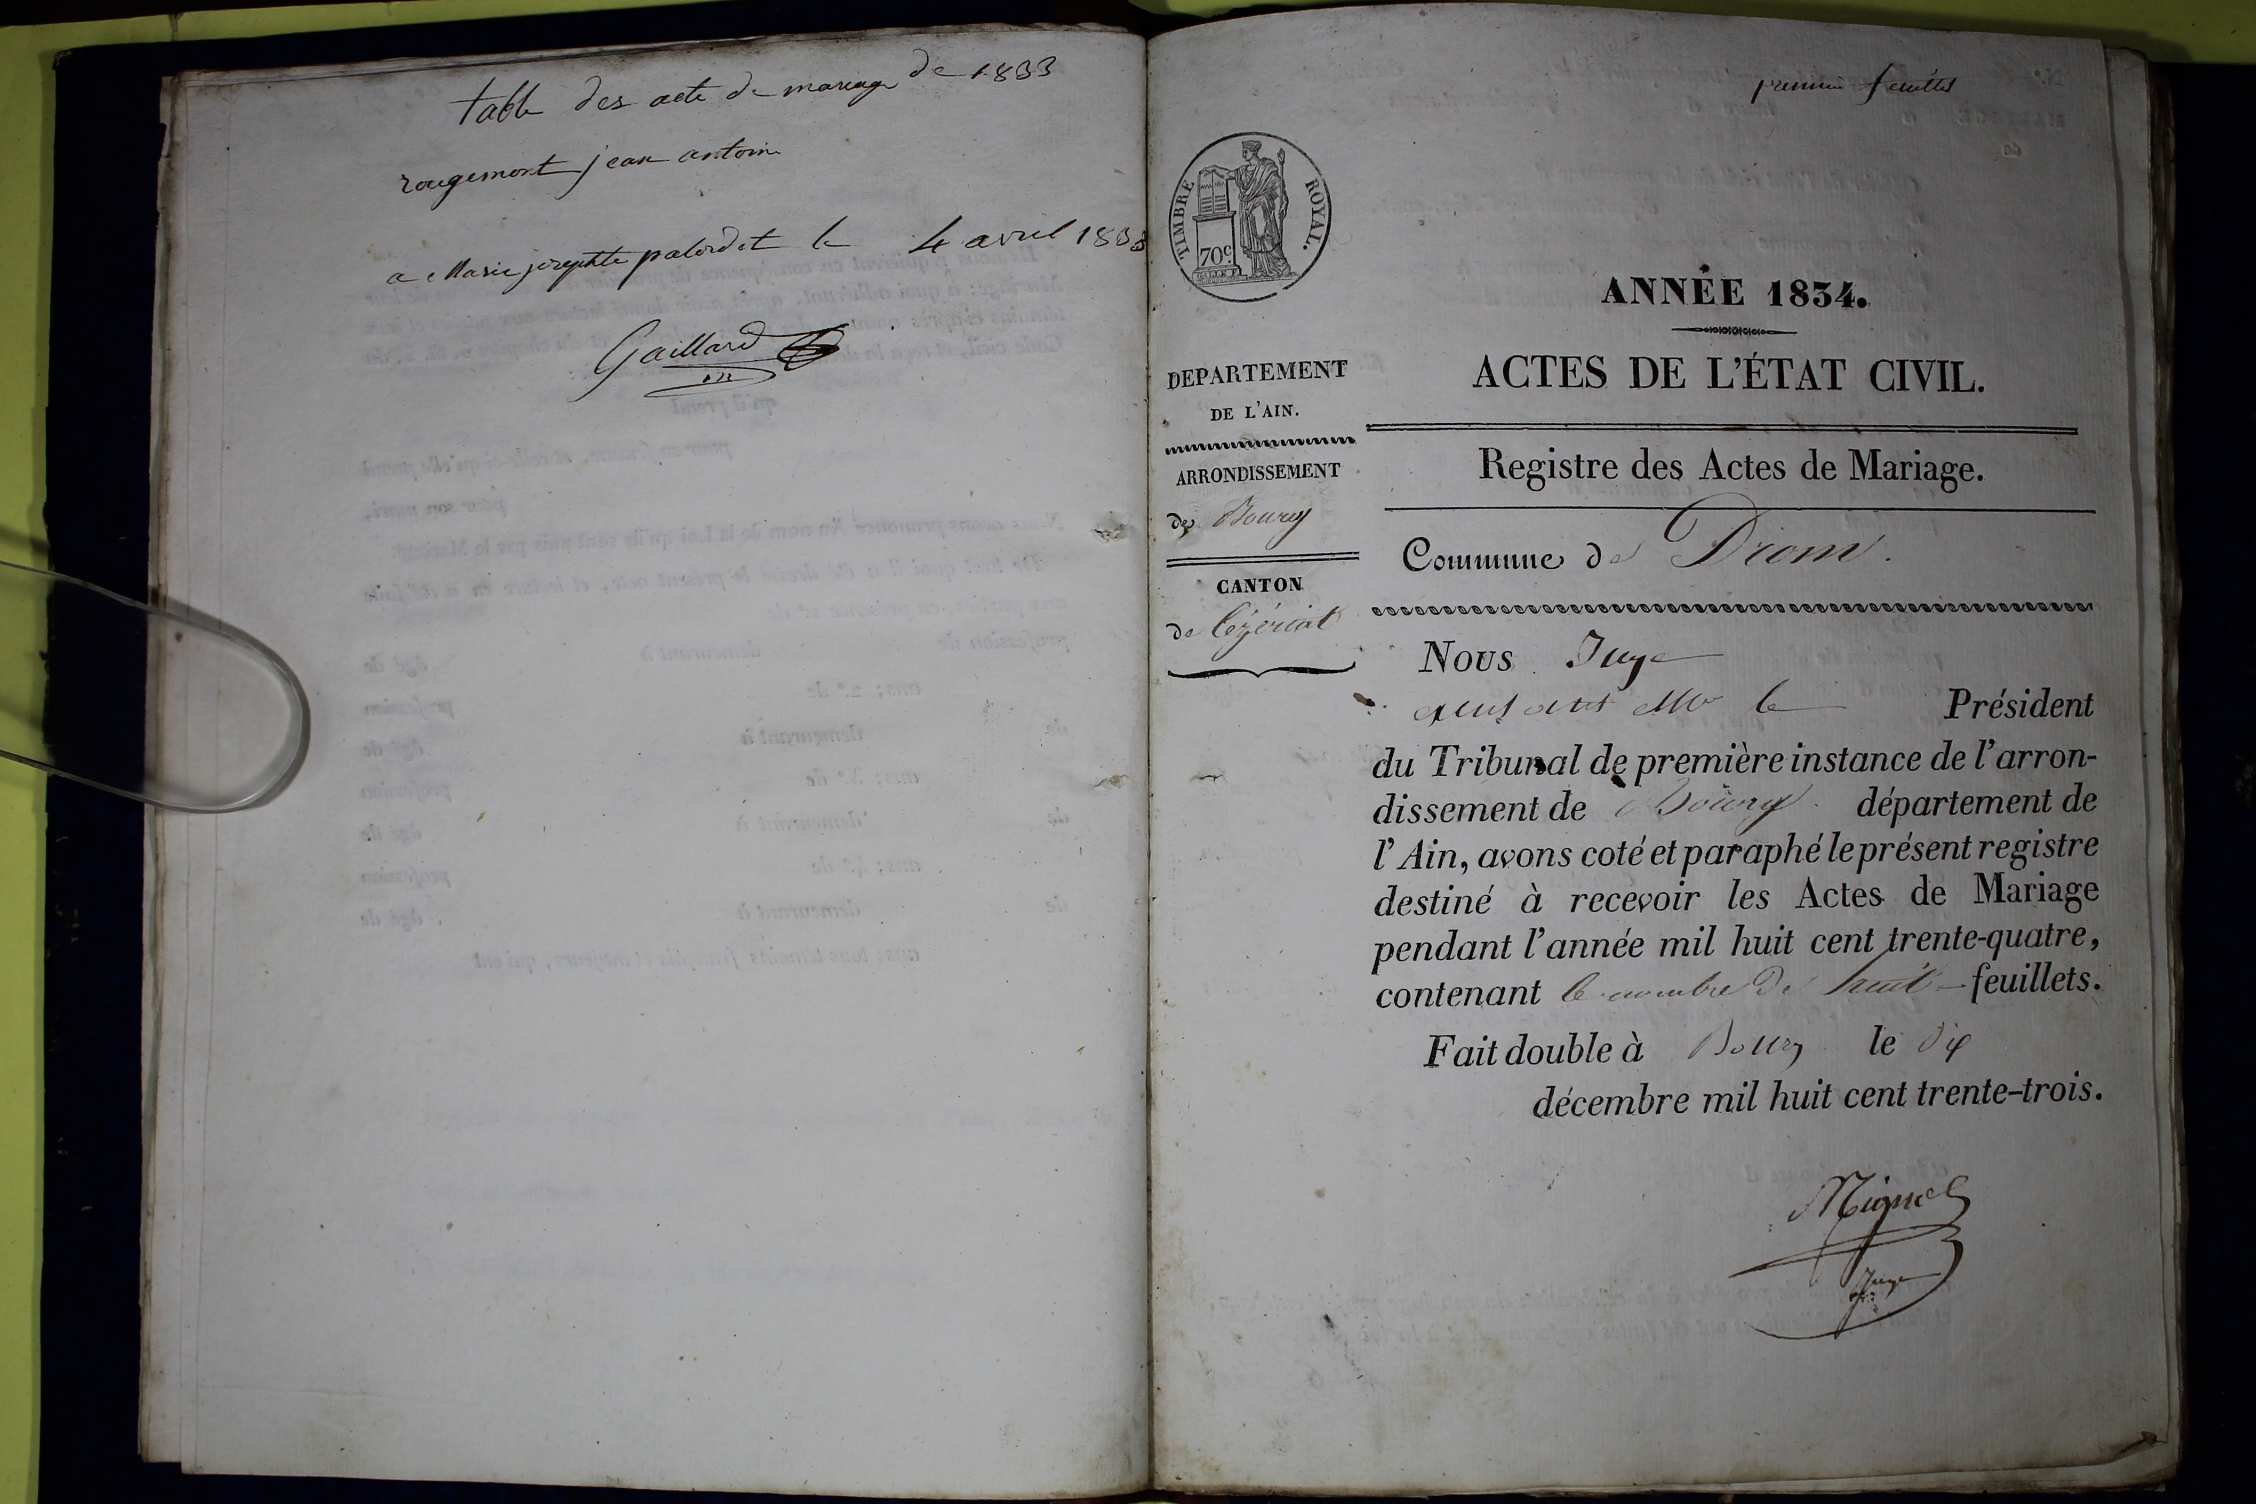 table des acte de mariage de 1833
rougemont jean antoine
a Marie josephte palordet le 4 avril 1833
Gaillard
premier feuillet
TIMBRE ROYAL.
70c.
ANNÉE 1834.
ACTES DE L'ÉTAT CIVIL.
Registre des Actes de Mariage.
Commune de Drom.
DEPARTEMENT
DE L'AIN.
ARRONDISSEMENT
de Bourg
CANTON
de Ceyzériat
Nous Juge
Mr le Président
du Tribunal de première instance de l'arron-
dissement de Bourg département de
l'Ain, avons coté et paraphé le présent registre
destiné à recevoir les Actes de Mariage
pendant l'année mil huit cent trente-quatre,
contenant le nombre de huit feuillets.
Fait double à Bourg le dix
décembre mil huit cent trente-trois.
Juge